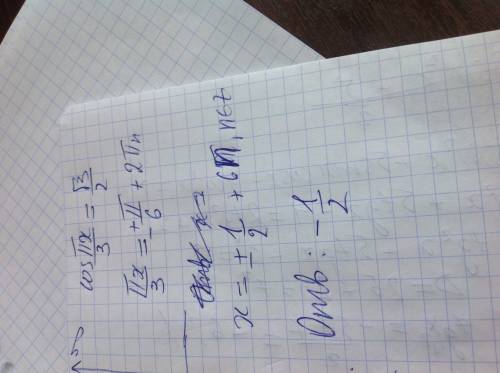 cos πx/3 = √3/2
πx/3 = ±π/6 + 2πn
x = ± 1/2 + 6n, n∈Z
Отв: -1/2